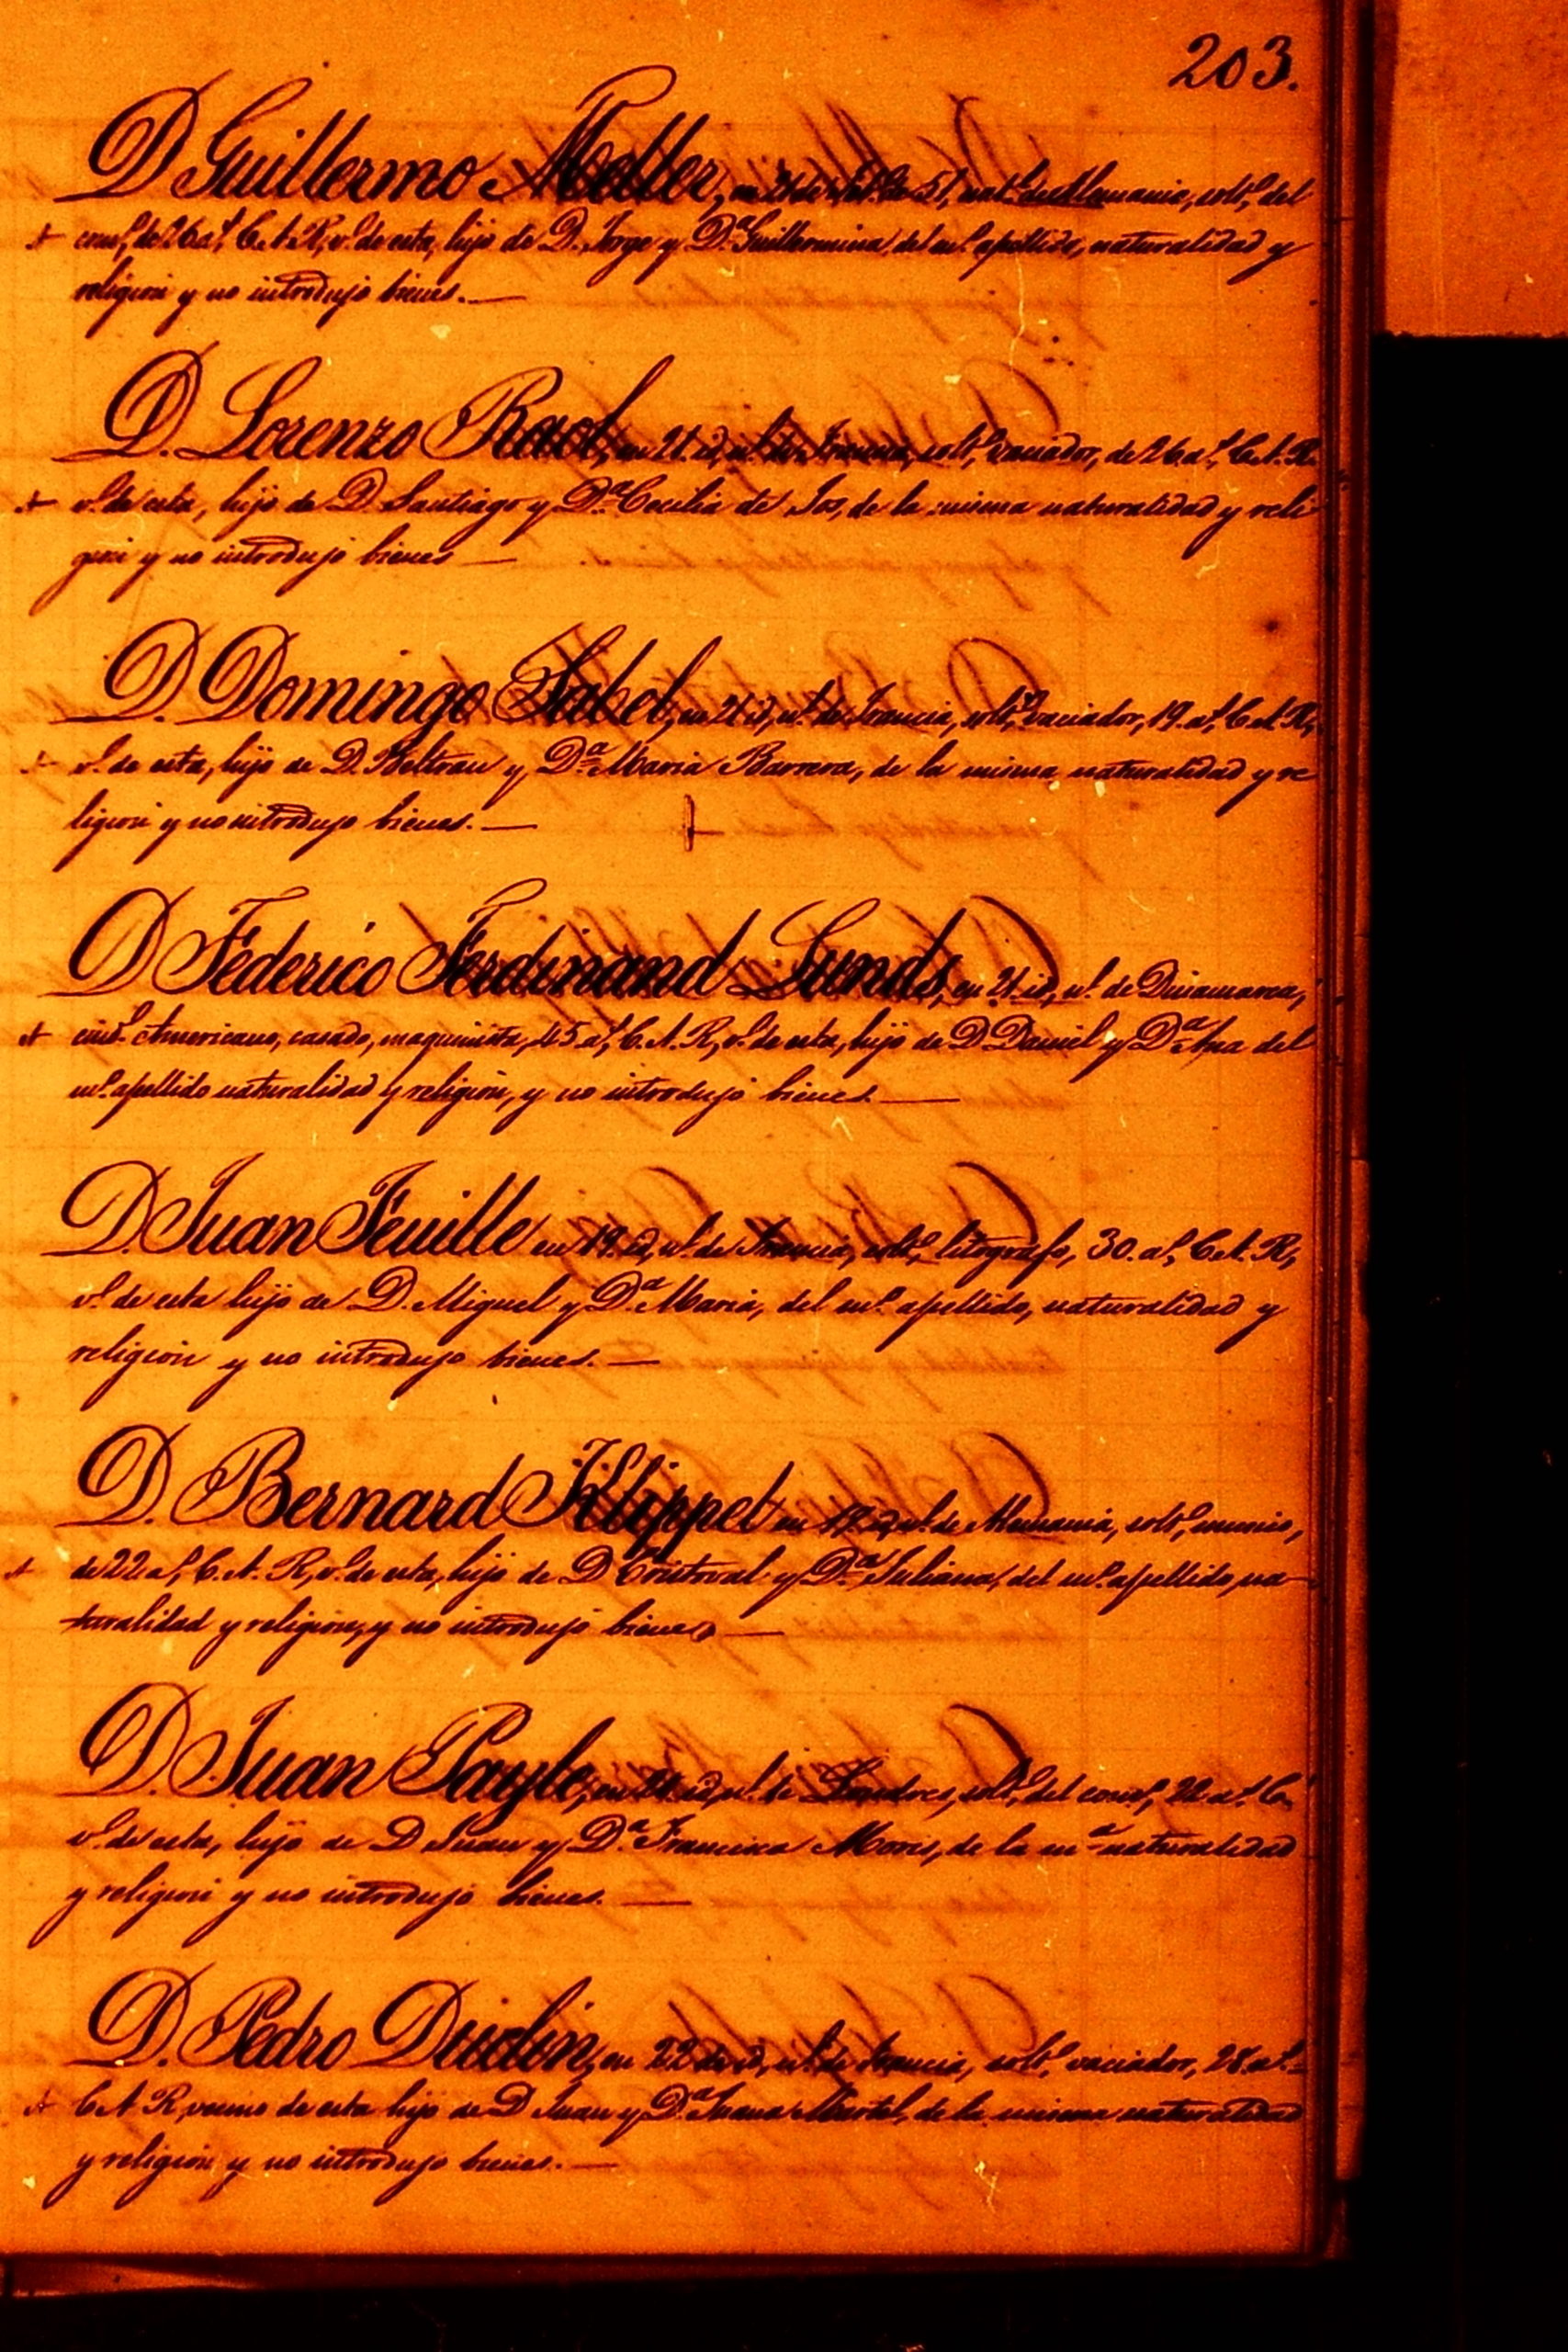 203.
D Guillermo Moeller, en 21 de de 51, nat.l de Alemania, solt.o, del
com.o, de 26 a.s, C.A.R, v.o de esta, hijo de D. Jorge y D.a Guillermina, del m.o apellido, naturalidad y
religion y no introdujo bienes.—
D. Lorenzo Raol, en 21 id, n.l de Francia, solt.o, vaciador, de 26 a.s, C.A.R.
v.o de esta, hijo de D Santiago y D.a Cecilia de Jos, de la misma naturalidad y reli
gion y no introdujo bienes —
D. Domingo Sabel, en 21 id, n.l de Francia, solt.o, vaciador, 19. a.s, C.A.R,
v.o de esta, hijo de D. Beltran y D.a Maria Barrera, de la misma naturalidad y re
ligion y no introdujo bienes. —
D Federico Ferdinand Lunds, en 21. id, n.l de Dinamarca,
ciud.o Americano, casado, maquinista, 45 a.s, C.A.R, v.o de esta, hijo de D Daniel y D.a Ana del
m.o apellido naturalidad y religion, y no introdujo bienes —
D. Juan Feuille en 19 id, n.l de Francia, solt.o, litografo, 30. a.s, C.A.R,
v.o de esta hijo de D. Miguel y D.a Maria, del m.o apellido, naturalidad y
religion y no introdujo bienes. —
D. Bernard Klippel en 19 id, n.l de Alemania, solt.o,
de 22 a.s, C.A.R, v.o de esta, hijo de D Cristoval y D.a Juliana, del m.o apellido, na-
turalidad y religion, y no introdujo bienes —
D. Juan Payle, en 21 id, n.l de Londres, solt.o, del com.o, 22 a.s, C.
v.o de esta, hijo de D Juan y D.a Francisca Moris, de la m.a naturalidad
y religion y no introdujo bienes. —
D. Pedro Duclin, en 22 de id, n.l de Francia, solt.o, vaciador, 28. a.s
C A R, vecino de esta hijo de D Juan y D.a Juana Martel, de la misma naturalidad
y religion y no introdujo bienes. —